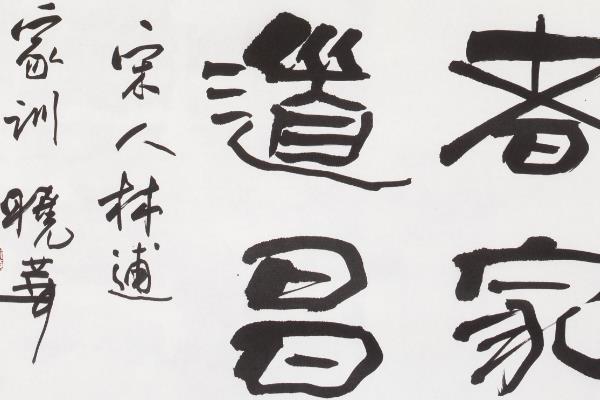 者家
道昌
宋人林逋
家训 曉華